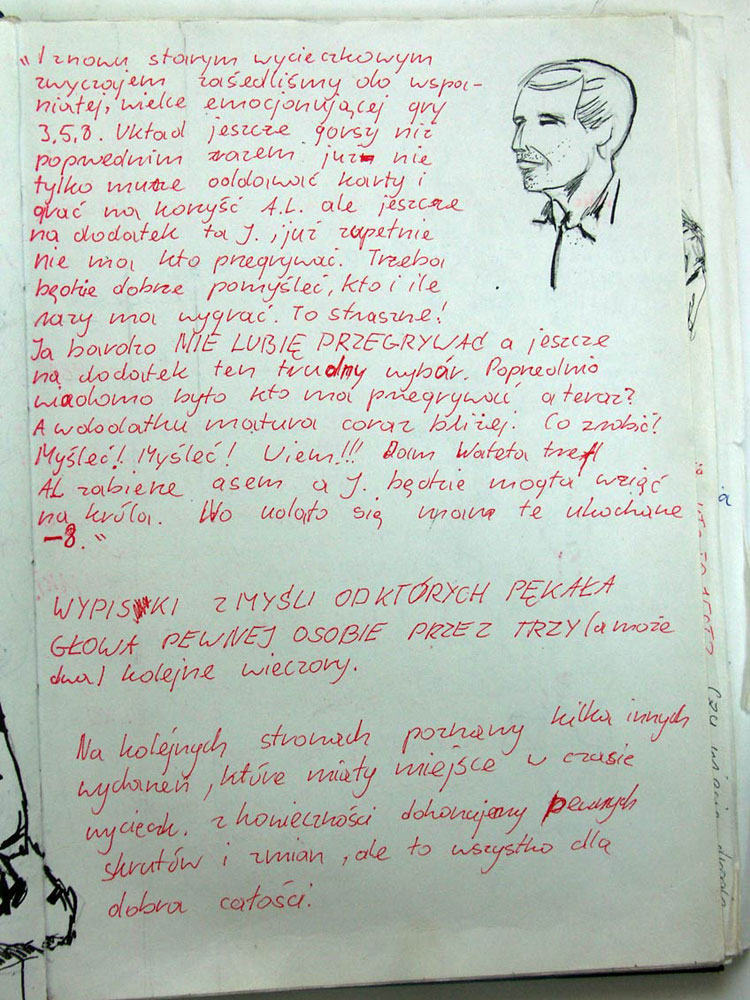 "I znowu starym wycieczkowym
zwyczajem zasiedliśmy do wspa-
niałej, wielce emocjonującej gry
3,5,8. Układ jeszcze gorszy niż
poprzednim razem już nie
tylko muszę oddawać karty i
grać na korzyść A.L. ale jeszcze
na dodatek ta J., już zupełnie
nie ma kto przegrywać. Trzeba
będzie dobrze pomyśleć, kto i ile
razy ma wygrać. To straszne!
Ja bardzo NIE LUBIĘ PRZEGRYWAĆ a jeszcze
na dodatek ten trudny wybór. Poprzednio
wiadomo było kto ma przegrywać a teraz?
A w dodatku matura coraz bliżej. Co zrobić?
Myśleć! Myśleć! Wiem!!! Dam Waleta trefl
AL zabierze asem a J. będzie mogła wziąć
na króla. No udało się mam te ukochane
-8."
WYPISKI z MYŚLI OD KTÓRYCH PĘKAŁA
GŁOWA PEWNEJ OSOBIE PRZEZ TRZY (a może
dwa) kolejne wieczory.
Na kolejnych stronach poznamy kilka innych
wydarzeń, które miały miejsce w czasie
wycieczk. z konieczności dokonujemy pewnych
skrutów i zmian, ale to wszystko dla
dobra całości.